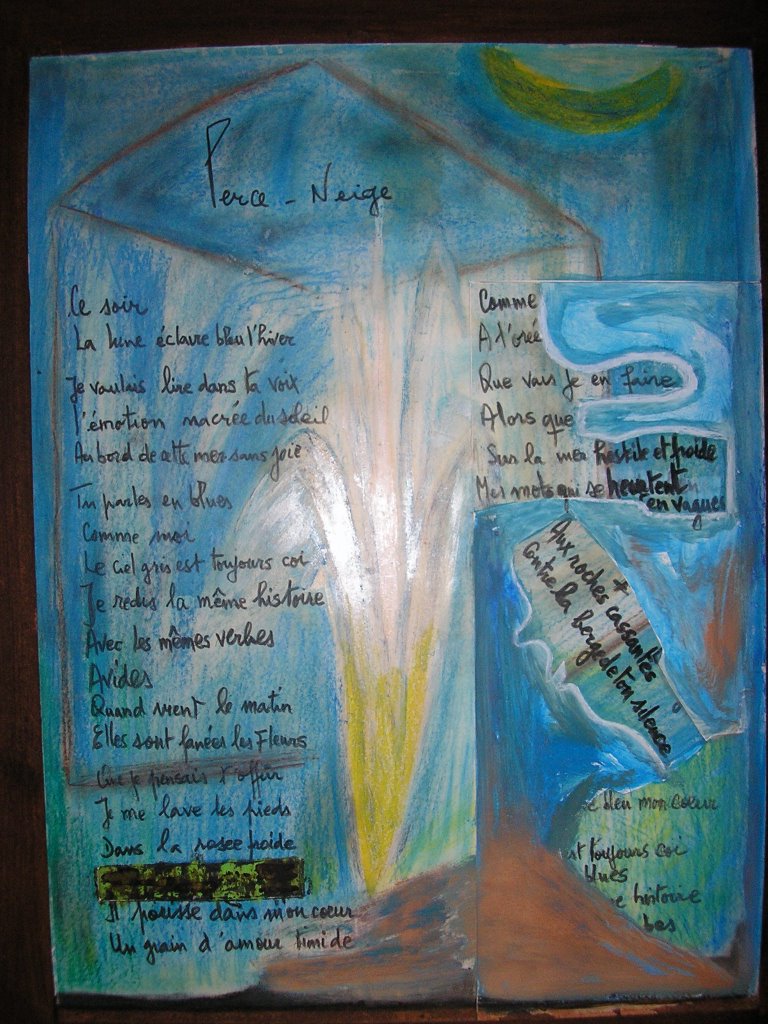 Perce - Neige
Ce soir
La lune éclaire bleu l'hiver
Je voulais lire dans ta voix
l'émotion nacrée du soleil
Au bord de cette mer sans joie
Tu parles en blues
Comme moi
Le ciel gris est toujours coi
Je redis la même histoire
Avec les mêmes verbes
Avides
Quand vient le matin
Elles sont fanées les Fleurs
Que je pensais t'offrir
Je me lave les pieds
Dans la rosée froide
Il pousse dans mon coeur
Un grain d'amour timide
Comme
A l'orée
Que vais je en faire
Alors que
Sur la mer hostile et froide
Mes mots qui se heurtent
en vagues
Aux roches cassantes
Entre la berge de ton silence
bleu mon coeur
st toujours coi
blues
e histoire
bes